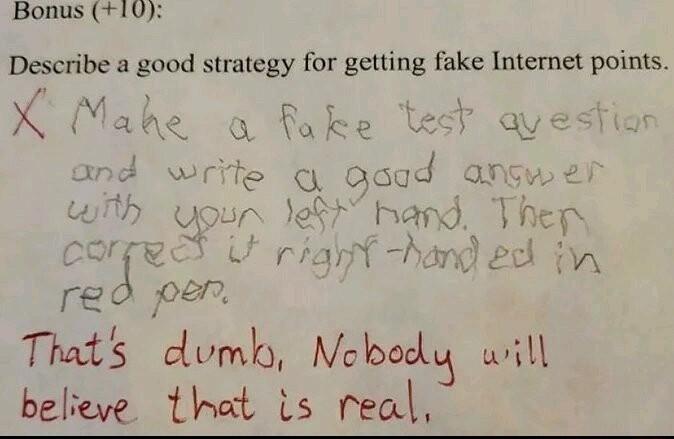 Bonus (+10):
Describe a good strategy for getting fake Internet points.
X Make a fake test question
and write a good answer
with your left hand. Then
correct it right-handed in
red pen.
That's dumb. Nobody will
believe that is real.